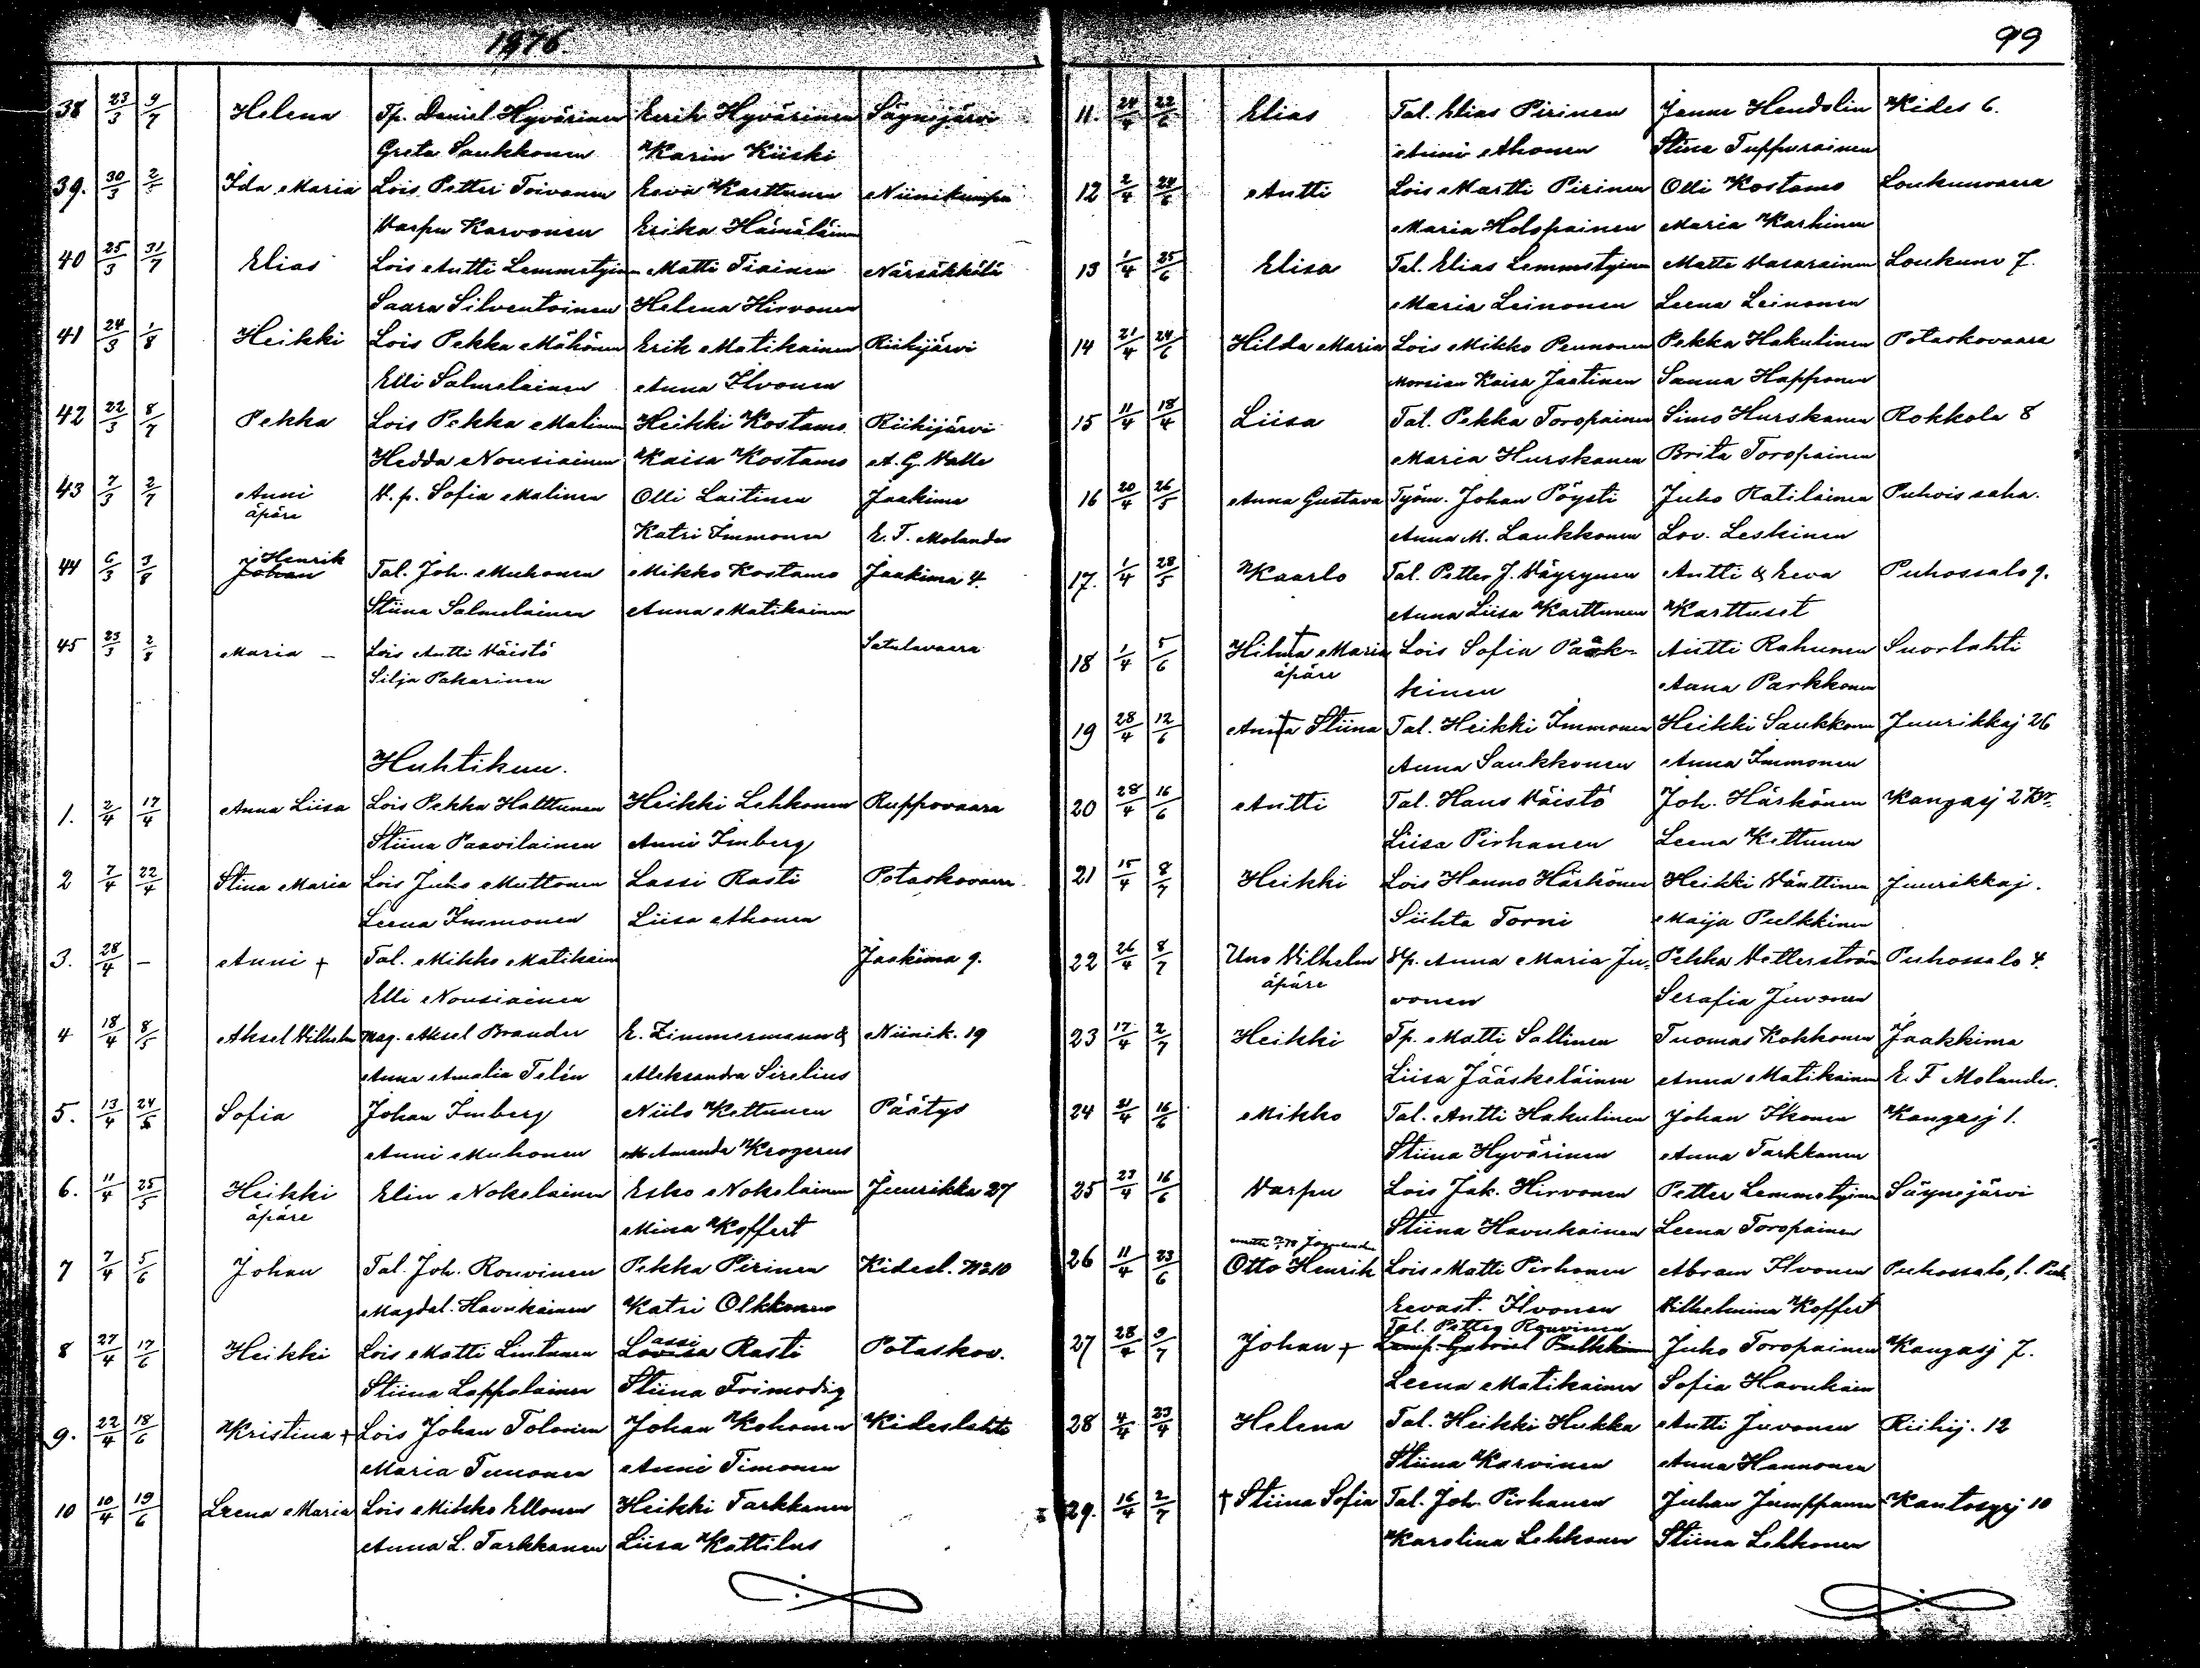 1876.
38 23/3 9/7 Helena Tp. Daniel Hyvärinen Eerik Hyvärinen Säynejärvi
Greta Saukkonen Karin Kiiski
39. 30/3 2/5 Ida Maria Lois Petter Toivanen Eeva Karttunen Niinikumpu
Varpu Karvonen Erika Hämäläinen
40 25/3 31/7 Elias Lois Antti Lemmetyinen Matti Tiainen Närsäkkälä
Saara Silventoinen Helena Hirvonen
41 24/3 1/8 Heikki Lois Pekka Mähönen Erik Matikainen Riihijärvi
Elli Salmelainen Anna Ilvonen
42 22/3 8/7 Pekka Lois Pekka Malinen Heikki Kostamo Riihijärvi
Hedda Nousiainen Kaisa Kostamo A. G. Valle
43 7/3 2/7 Anni V. p. Sofia Malinen Olli Laitinen Jaakima
äpäre Katri Immonen E. F. Molander
44 6/3 3/8 j Henrik
Johan Tal. Joh. Muhonen Mikko Kostamo Jaakima 4.
Stiina Salmelainen Anna Matikainen
45 23/3 2/8 Maria – Lois Antti Väistö Satulavaara
Silja Pakarinen
Huhtikuu.
1. 2/4 17/4 Anna Liisa Lois Pekka Halttunen Heikki Lehkonen Ruppovaara
Stiina Paavilainen Anni Imberg
2 7/4 22/4 Stina Maria Lois Juho Muttonen Lassi Rasti Potaskovaara
Leena Immonen Liisa Ahonen
3. 28/4 – Anni + Tal. Mikko Matikain Jaakima 9.
Elli Nousiainen
4 18/4 8/5 Aksel Vilhelm Mag. Aksel Brander E. Zimmermann & Niinik. 19
Anna Amalia Telén Aleksandra Sirelius
5. 13/4 24/5 Sofia Johan Imberg Niilo Kettunen Päätys
Anni Muhonen M Amanda Krogerus
6. 11/4 25/5 Heikki Elin Nokelainen Esko Nokelainen Juurikka 27
äpäre Mina Koffert
7 7/4 5/6 Johan Tal. Joh. Rouvinen Pekka Pirinen Kidesl. No 10
Magdal. Havukainen Katri Olkkonen
8 27/4 17/6 Heikki Lois Matti Lintunen Lassi Rasti Potaskov.
Stiina Lappalainen Stiina Frimodig
9. 22/4 18/6 Kristina + Lois Johan Tolonen Johan Kohonen Kideslahti
Maria Timonen Anni Timonen
10 10/4 19/6 Leena Maria Lois Mikko Ellonen Heikki Tarkkanen
Anna L. Tarkkanen Liisa Kattilus
99
11. 24/4 22/6 Elias Tal. Elias Pirinen Janne Hendolin Kides 6.
Anni Ahonen Stina Tuppurainen
12 2/4 24/6 Antti Lois Martti Pirinen Olli Kostamo Loukunvaara
Maria Holopainen Maria Karhinen
13 1/4 25/6 Elisa Tal. Elias Lemmetyinen Matti Vasarainen Loukunv 7.
Maria Leinonen Leena Leinonen
14 21/4 24/6 Hilda Maria Lois Mikko Pennonen Pekka Hakulinen Potaskovaara
Morsian Kaisa Jaatinen Sanna Happonen
15 11/4 18/4 Liisa Tal. Pekka Toropainen Simo Hurskanen Rokkola 8
Maria Hurskanen Brita Toropainen
16 20/4 26/5 Anna Gustava Työm. Johan Pöysti Juho Ratilainen Puhois saha.
Anna M. Laukkonen Lov. Leskinen
17. 1/4 28/5 Kaarlo Tal. Petter J. Väyrynen Antti & Eeva Puhossalo 9.
Anna Liisa Karttunen Karttuset
18 1/4 5/6 Hilma Maria Lois Sofia Paak- Antti Rahunen Suorlahti
äpäre kinen Anna Parkkonen
19 28/4 12/6 Anna Stiina Tal. Heikki Immonen Heikki Saukkonen Juurikkaj 26
Anna Saukkonen Anna Immonen
20 28/4 16/6 Antti Tal. Hans Väistö Joh. Härkönen Kangasj 2
Liisa Pirhonen Leena Kettunen
21 15/4 8/7 Heikki Lois Hannu Härkönen Heikki Vänttinen Juurikkaj.
Siihta Torni Maija Pulkkinen
22 26/4 8/7 Uno Vilhelm Sp. Anna Maria Ju- Pekka Vetterström Puhossalo 4.
äpäre vonen Serafia Juvonen
23 17/4 2/7 Heikki Tp. Matti Sallinen Tuomas Kokkonen Jaakkima
Liisa Jääskeläinen Anna Matikainen E. F Molander.
24 21/4 16/6 Mikko Tal. Antti Hakulinen Johan Ikonen Kangasj 1.
Stiina Hyvärinen Anna Tarkkanen
25 23/4 16/6 Varpu Lois Jak. Hirvonen Petter Lemmetyinen Säynejärvi
Stiina Havukainen Leena Toropainen
26 11/4 23/6 Otto Henrik Lois Matti Pirhonen Abram Ilvonen Puhossalo, l. Puh.
Eevast. Ilvonen Vilhelmina Koffert
Tal. Petter Rouvinen
27 28/4 9/7 Johan + Lamp. Gabriel Pulkkinen Juho Toropainen Kangasj 7.
Leena Matikainen Sofia Havukain
28 4/4 23/4 Helena Tal. Heikki Hukka Antti Juvonen Riihij. 12
Stiina Karvinen Anna Hannonen
29. 16/4 2/7 † Stiina Sofia Tal. Joh. Pirhonen Juhan Jumppanen Kantosyrj 10
Karolina Lehkonen Stiina Lehkonen